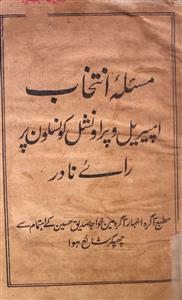 مسئلۂ انتخاب
امپیریل و پراونشل کونسلون پر
رائے نادر
مطبع آگرہ اخبار آگرہ مین خواجہ صدیق حسین کے اہتمام سے
چھپکر شائع ہوا